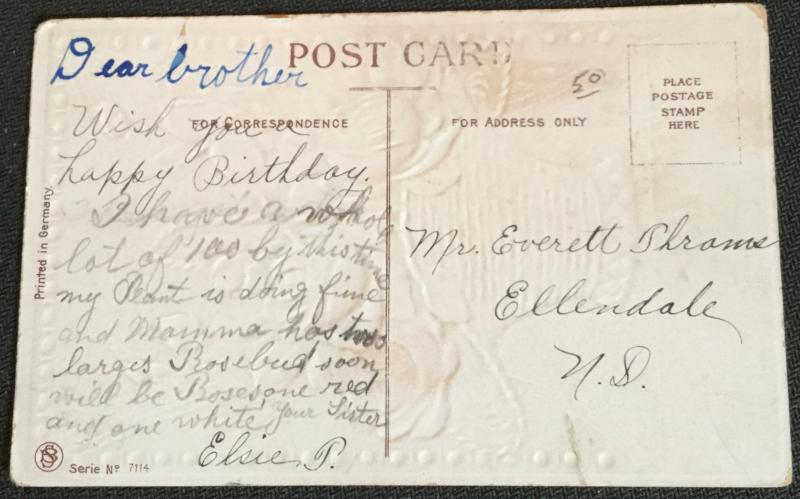 POST CARD
Dear brother
50
PLACE
POSTAGE
STAMP
HERE
FOR CORRESPONDENCE
FOR ADDRESS ONLY
Wish you a
happy Birthday.
I have a whole
lot of 100 by this time
my Plant is doing fine
and Mamma has two
larges Rosebud soon
will be Roses, one red
and one white, Your Sister
Elsie P.
Mr. Everett Thrams
Ellendale
N.D.
Printed in Germany.
Serie No 7114